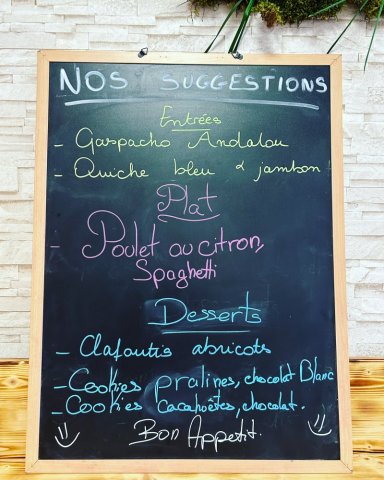 NOS SUGGESTIONS
Entrées
- Gaspacho Andalou
- Quiche bleu & jambon
Plat
- Poulet au citron,
Spaghetti
Desserts
- Clafoutis abricots
- Cookies pralines, chocolat Blanc
- Cookies cacahoêtes, chocolat.
Bon Appetit.